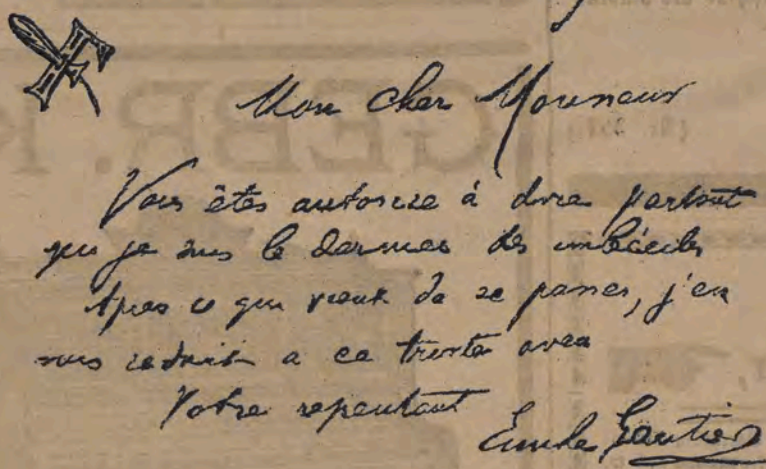 Mon cher Monsieur
Vous êtes autorisé à dire partout
que je suis le dernier des imbéciles
Après ce qui vient de se passer, j'en
suis réduit à ce triste aveu
Votre repentant
Emile Gautier
GEBR.